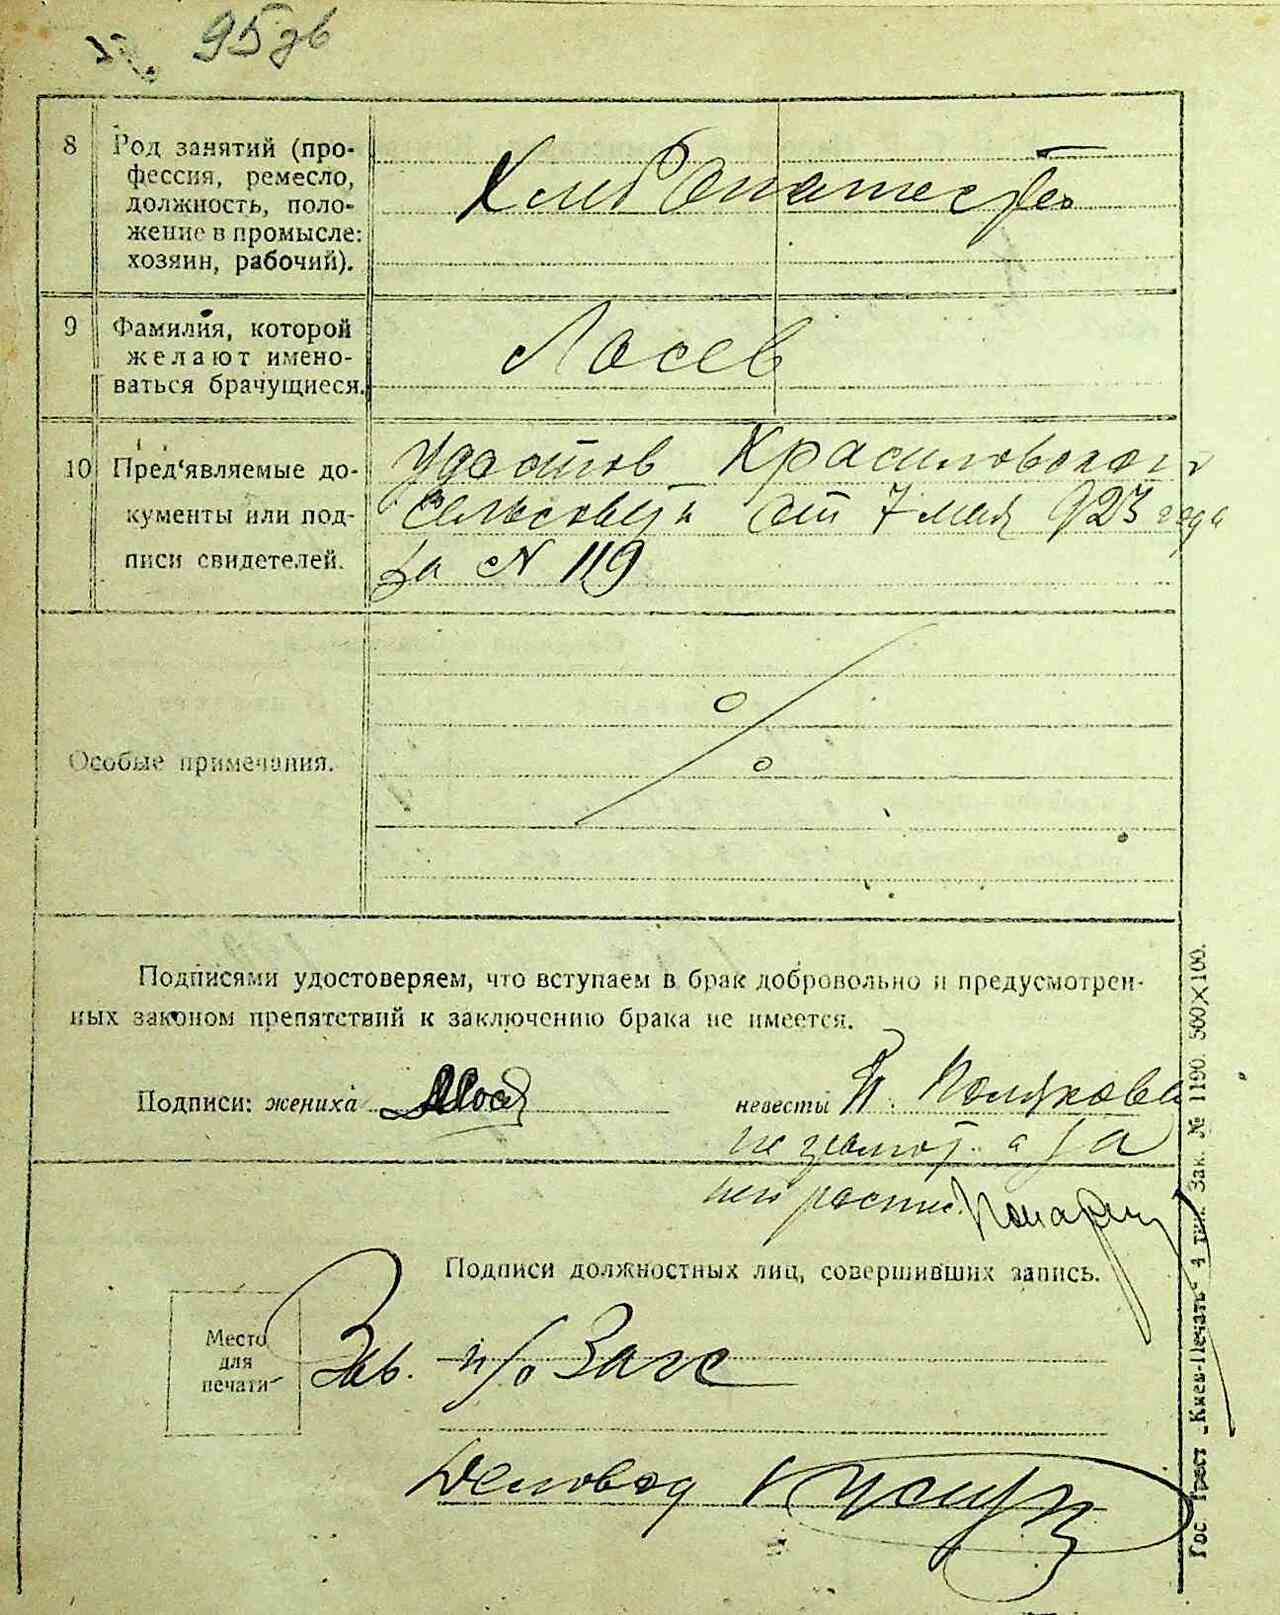 95 зв
8 Род занятий (про-
фессия, ремесло,
должность, поло-
жение в промысле:
хозяин, рабочий).
Хлибопашество
9 Фамилия, которой
желают имено-
ваться брачущиеся.
Лосев
10 Пред‘являемые до-
кументы или под-
писи свидетелей.
удостов Красиловского
сельсовета от 7 мая 923 года
за N 119
Особые примечания.
Подписями удостоверяем, что вступаем в брак добровольно и предусмотрен-
ных законом препятствий к заключению брака не имеется.
Подписи: жениха невесты П. Полякова
не грамот. а за
нею распис.
Подписи должностных лиц, совершивших запись.
Место
для
печати
Зав. п/о Загс
Деловод
Гос. Трест „Киев-Печать“ 4 тип. Зак. № 1190. 500×100.